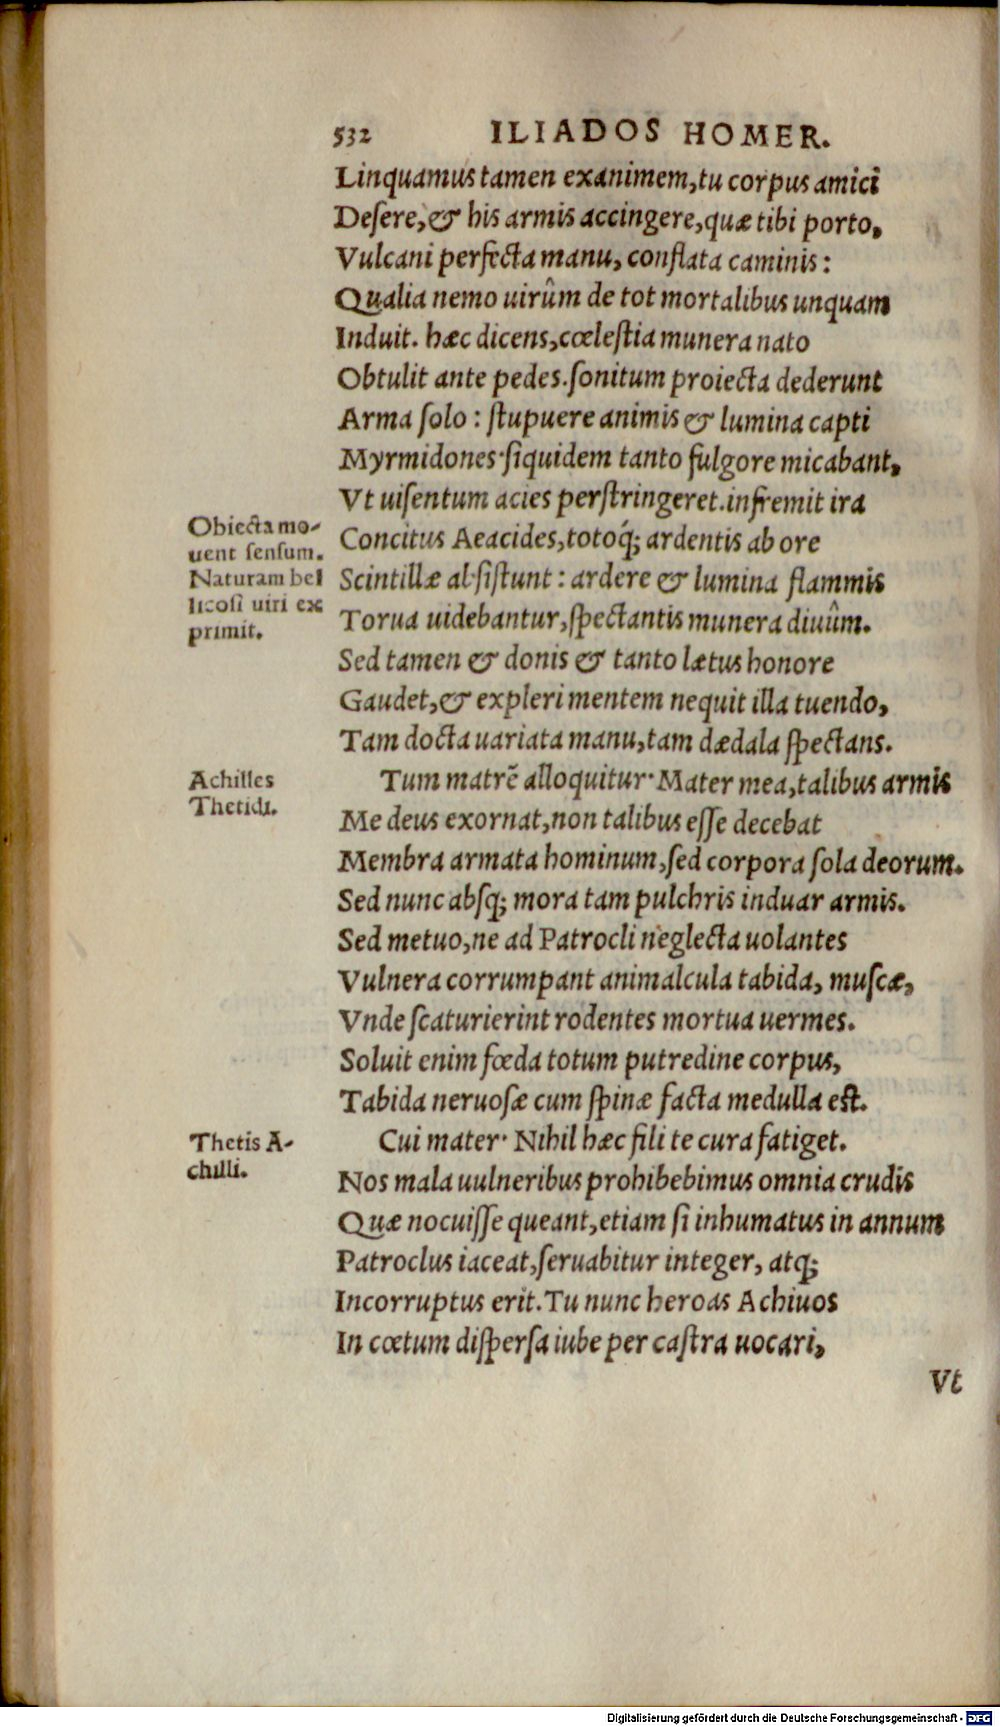 532 ILIADOS HOMER.
Linquamus tamen exanimem, tu corpus amici
Deſere, & his armis accingere, quæ tibi porto,
Vulcani perfecta manu, conflata caminis:
Qualia nemo uirûm de tot mortalibus unquam
Induit. hæc dicens, cœleſtia munera nato
Obtulit ante pedes. ſonitum proiecta dederunt
Arma ſolo: ſtupuere animis & lumina capti
Myrmidones· ſiquidem tanto fulgore micabant,
Vt uiſentum acies perſtringeret. infremit ira
Obiecta mo-
uent ſenſum.
Naturam bel
licoſi uiri ex
primit.
Concitus Aeacides, totoq́; ardentis ab ore
Scintillæ abſiſtunt: ardere & lumina flammis
Torua uidebantur, ſpectantis munera diuûm.
Sed tamen & donis & tanto lætus honore
Gaudet, & expleri mentem nequit illa tuendo,
Tam docta uariata manu, tam dædala ſpectans.
Achilles
Thetidi.
Tum matrẽ alloquitur· Mater mea, talibus armis
Me deus exornat, non talibus eſſe decebat
Membra armata hominum, ſed corpora ſola deorum.
Sed nunc abſq; mora tam pulchris induar armis.
Sed metuo, ne ad Patrocli neglecta uolantes
Vulnera corrumpant animalcula tabida, muſcæ,
Vnde ſcaturierint rodentes mortua uermes.
Soluit enim fœda totum putredine corpus,
Tabida neruoſæ cum ſpinæ facta medulla eſt.
Thetis A-
chilli.
Cui mater· Nihil hæc fili te cura fatiget.
Nos mala uulneribus prohibebimus omnia crudis
Quæ nocuiſſe queant, etiam ſi inhumatus in annum
Patroclus iaceat, ſeruabitur integer, atq;
Incorruptus erit. Tu nunc heroas Achiuos
In cœtum diſperſa iube per caſtra uocari,
Vt
Digitalisierung gefördert durch die Deutsche Forschungsgemeinschaft - DFG